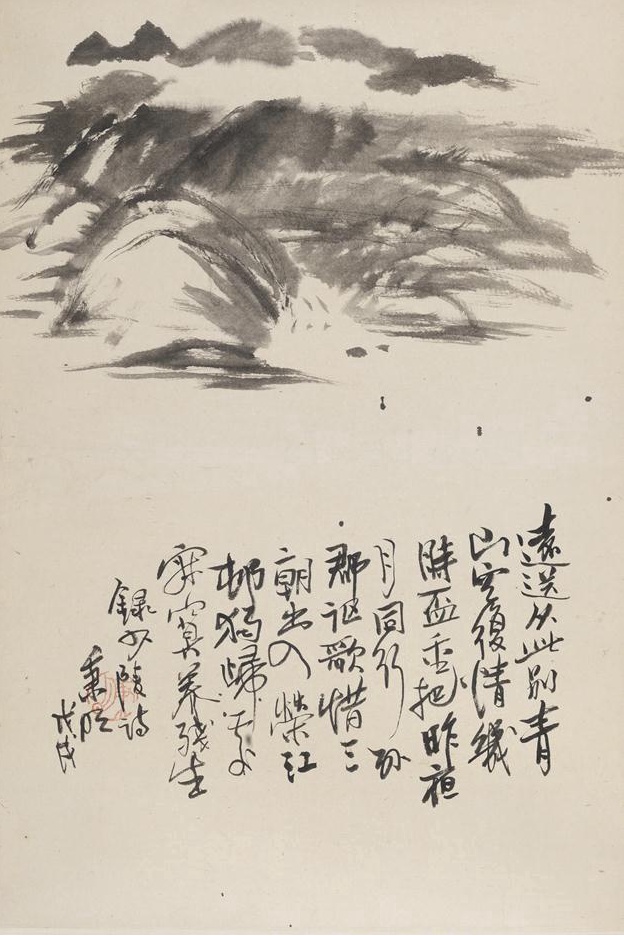 遠送从此別青
山空復情幾
時盃重把昨夜
月同行列
郡謳歌惜三
朝出入榮江
邨獨歸處
寂寞養殘生
錄少陵詩
秉
戊戌